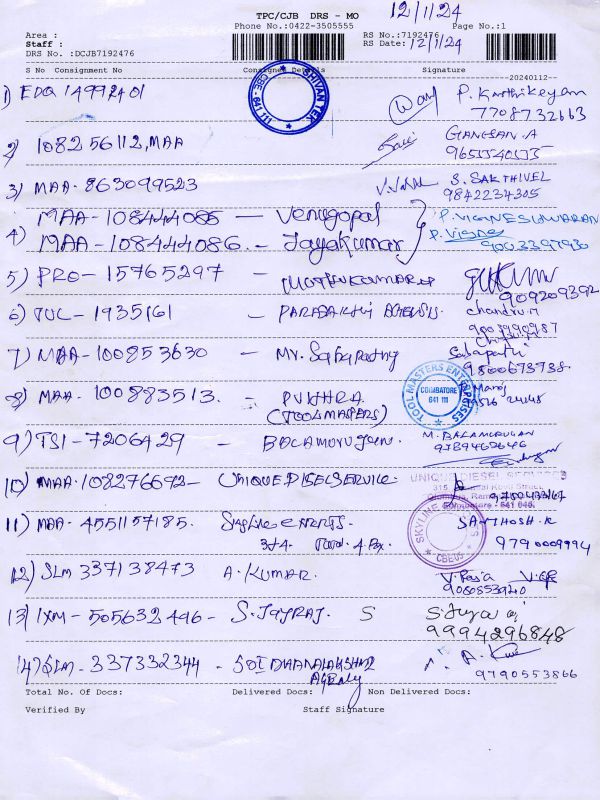 12/1/24
TPC/CJB DRS - MO
Phone No.:0422-3505555 Page No.:1
Area : RS No.:7192476
Staff : RS Date: 12/1/24
DRS No. :DCJB7192476
S No Consignment No Consignee Details Signature
--20240112--
SHIVAN TEK
CBE - 641 111
1) EDQ 14992401 P. Karthikeyan
7708732663
2) 108256112, MAA GANESAN.A
3) MAA-863099523 S. SAKTHIVEL
9842234305
MAA-108444085 - Venugopal P. VIGNESHWARAN
4) MAA-108444086 - Jayakumar P. Vignes
5) PRO-15765297 - MUTHUKUMAR
909209392
6) TUC-1935161 - chandru.M
7) MAA-100853630 - Mr. Sabapathy Sabapathi
9800673738
TOOL MASTERS ENTERPRISES
COIMBATORE
641 111
8) MAA-100883513. - PUKHRA Manoj
(TOOLMASTERS)
9) TSI-7206429 - BALAMURUGAN. M. BALAMURUGAN
9789462646
10) MAA-108276692 - UNIQUE DISELSERVICE. UNIQUE DIESEL SERVICES
Coimbatore - 641 045
11) MAA-4551157185. Skyline exports. SANTHOSH.K
9790009994
SKYLINE
CBE05
12) SLM 337138473 A. KUMAR. V. Raja
9080853940
13) IXM-505632496 - S. JAYRAJ. S
9994296848
14) SLM-337332344 - SRI DHANALAKSHMI A. Kum
Agency 9790553866
Total No. Of Docs: Delivered Docs: Non Delivered Docs:
Verified By Staff Signature